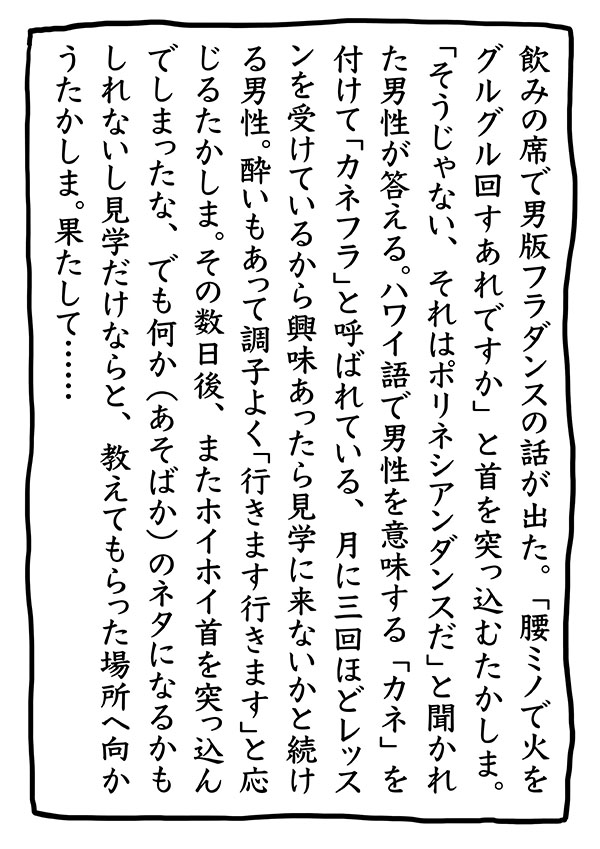 飲みの席で男版フラダンスの話が出た。「腰ミノで火を
グルグル回すあれですか」と首を突っ込むたかしま。
「そうじゃない、それはポリネシアンダンスだ」と聞かれ
た男性が答える。ハワイ語で男性を意味する「カネ」を
付けて「カネフラ」と呼ばれている、月に三回ほどレッス
ンを受けているから興味あったら見学に来ないかと続け
る男性。酔いもあって調子よく「行きます行きます」と応
じるたかしま。その数日後、またホイホイ首を突っ込ん
でしまったな、でも何か（あそばか）のネタになるかも
しれないし見学だけならと、教えてもらった場所へ向か
うたかしま。果たして……